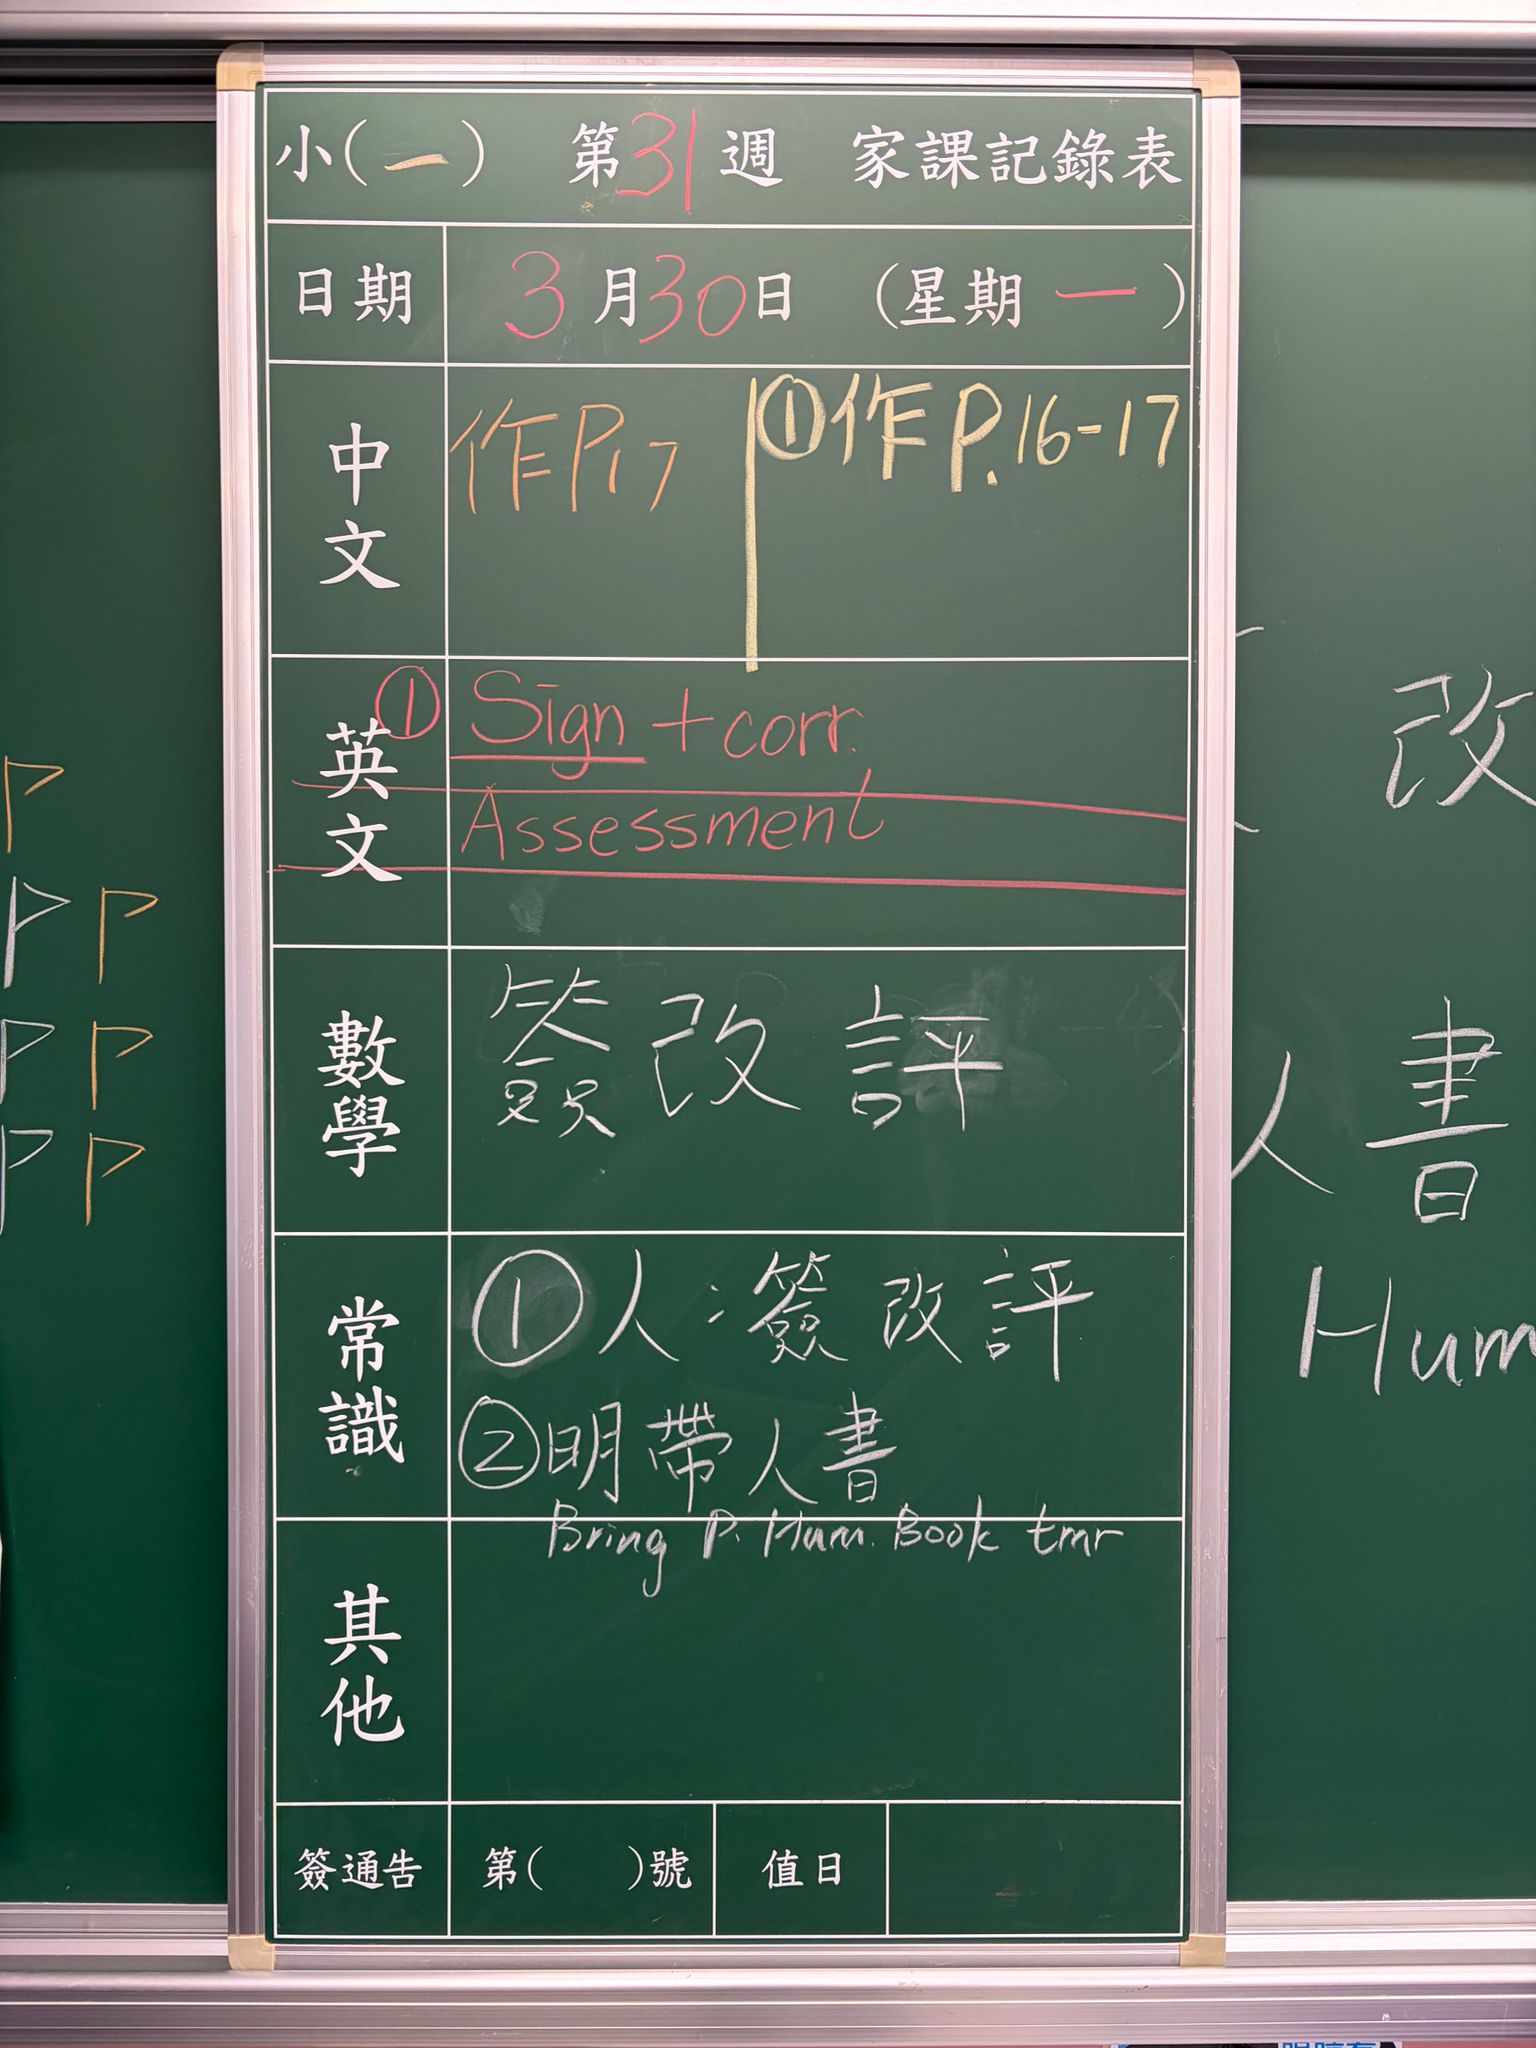 小(一) 第31週 家課記錄表
日期 3月30日 (星期一)
中文 作P17 ①作P.16-17
英文 ① Sign + corr.
Assessment
數學 簽改評
常識 ①人:簽改評
②明帶人書
Bring P. Hum. Book tmr
其他
簽通告 第( )號 值日
P
P P
P P
P P
改
人書
Hum